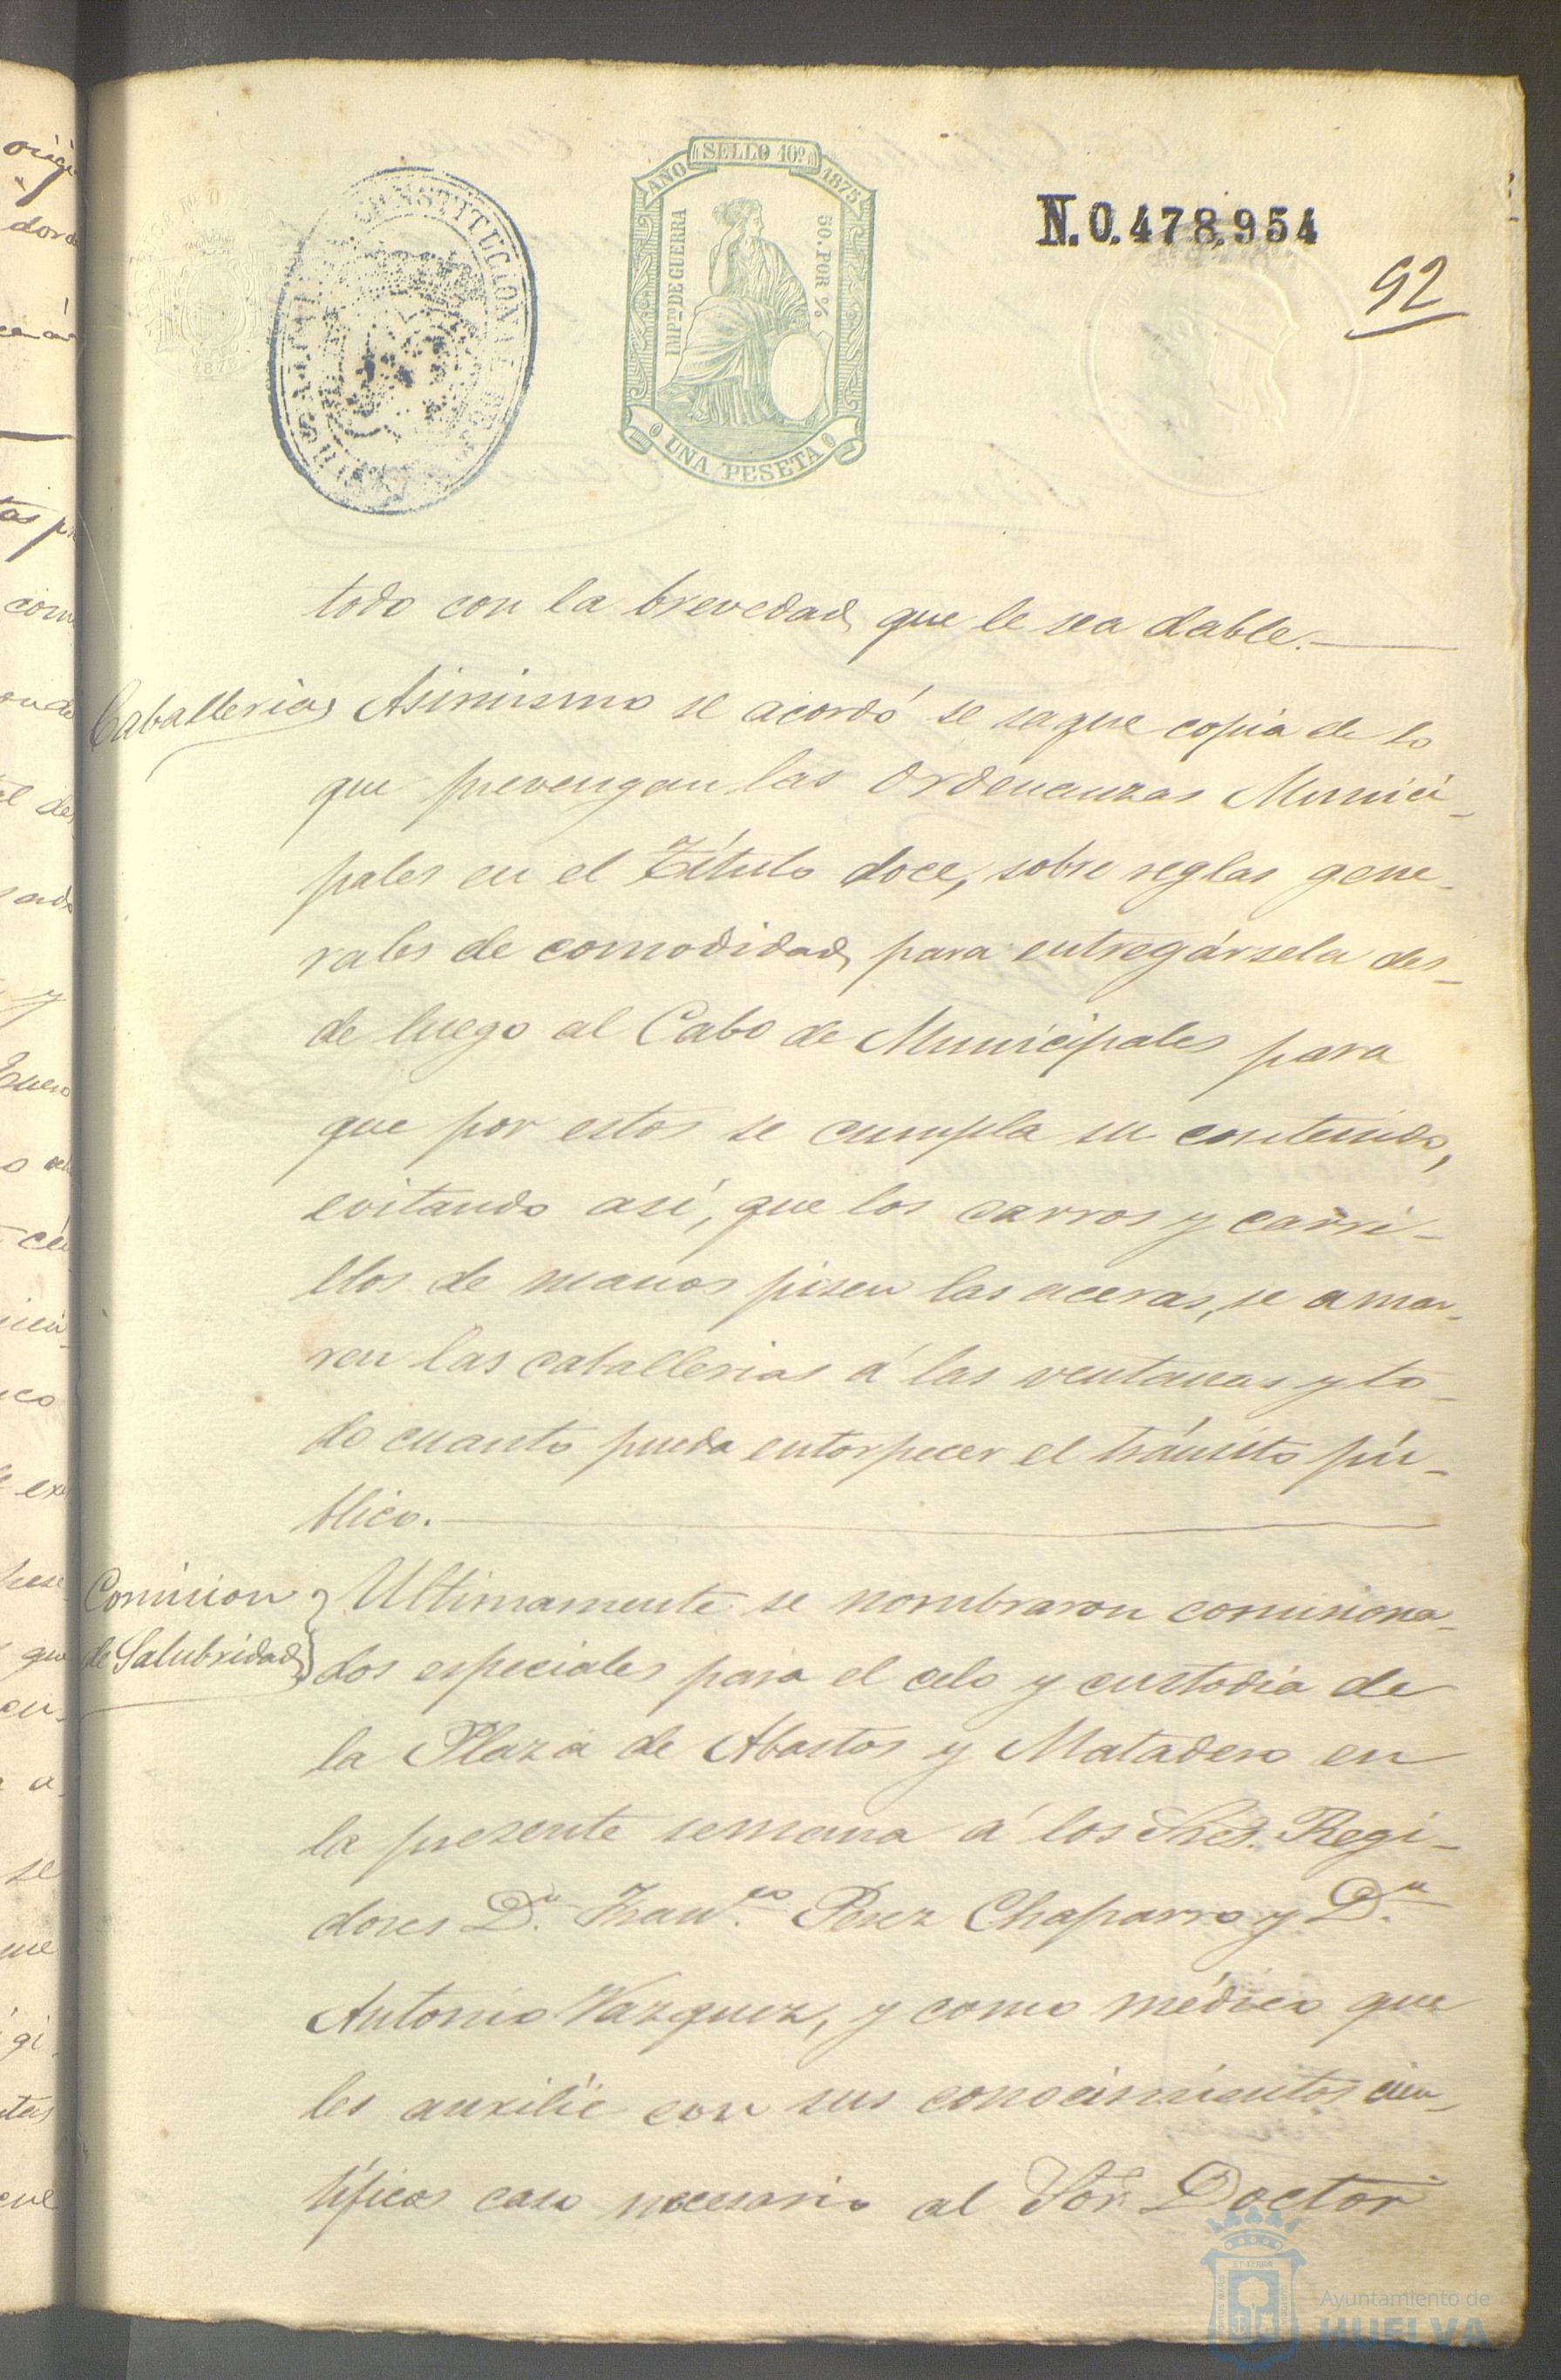 SELLO 10º
AÑO 1875
IMP.TO DE GUERRA
50. POR %
UNA PESETA
CONSTITUCIONAL
N. 0.478.954
92
todo con la brevedad que le sea dable.
Caballerias
Asimismo se acordó se saque copia de lo
que prevengan las Ordenanzas Munici-
pales en el Título doce, sobre reglas gene-
rales de comodidad para entregársela des-
de luego al Cabo de Municipales para
que por estos se cumpla su contenido,
evitando así, que los carros y carri-
llos de manos pisen las aceras, se amar-
ren las caballerias á las ventanas y to-
do cuanto pueda entorpecer el tránsito pú-
blico.
Comision
de Salubridad
Ultimamente se nombraron comisiona-
dos especiales para el celo y custodia de
la Plaza de Abastos y Matadero en
la presente semana á los Sres. Regi-
dores D.n Fran.co Perez Chaparro y D.n
Antonio Vazquez, y como médico que
les auxilie con sus conocimientos cien-
tíficos caso necesario al Sor. Doctor
Ayuntamiento de
HUELVA